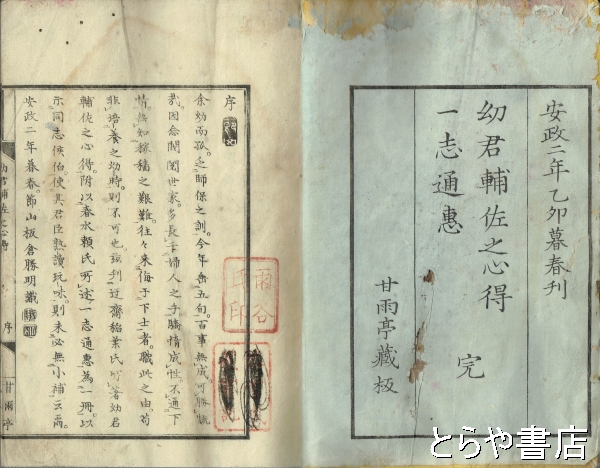 安政二年乙卯暮春刊
幼君輔佐之心得
一志通惠
完
甘雨亭藏板
序
余幼而孤。乏師保之訓。今年垂五旬。百事無成。可勝慨
哉。因念閥閱世家。多長于婦人之手。驕惰成性。不通下
情。無知稼穡之艱難。往々來侮于下士者。職此之由。苟
非培養之幼時。則不可也。玆刊迂齋稻葉氏所著幼君
輔佐之心得。附以春水賴氏所述一志通惠為一冊。以
示同志侯伯。使其君臣熟讀玩味。則未必無小補云爾。
安政二年暮春。節山板倉勝明識
幼君輔佐之心得
序
甘雨亭
雨谷
とらや書店